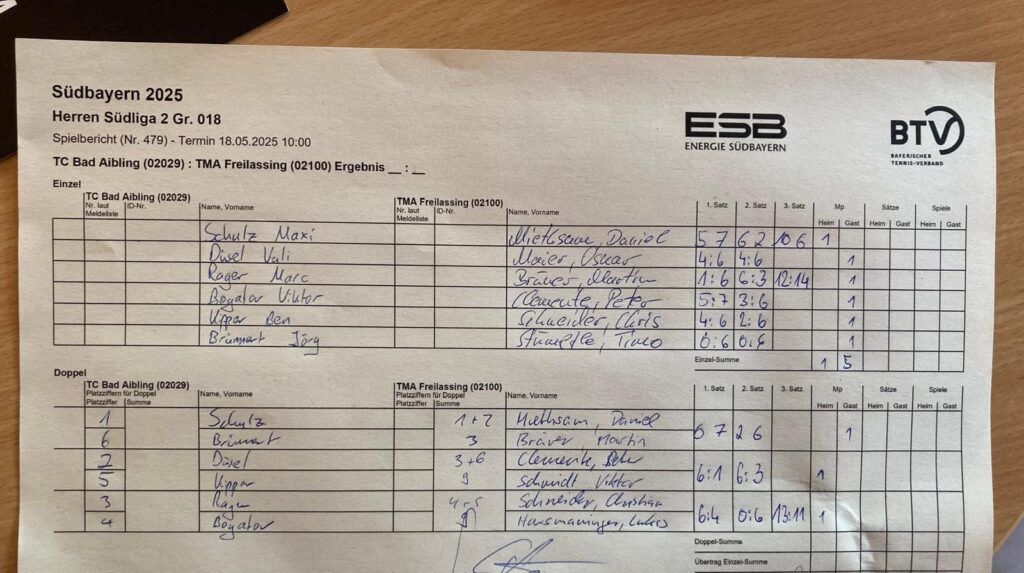 Südbayern 2025
Herren Südliga 2 Gr. 018
Spielbericht (Nr. 479) - Termin 18.05.2025 10:00
TC Bad Aibling (02029) : TMA Freilassing (02100) Ergebnis __ : __
ESB
ENERGIE SÜDBAYERN
BTV
BAYERISCHER
TENNIS-VERBAND
Einzel
TC Bad Aibling (02029) TMA Freilassing (02100)
Nr. laut Meldeliste ID-Nr. Name, Vorname Nr. laut Meldeliste ID-Nr. Name, Vorname 1. Satz 2. Satz 3. Satz Mp Sätze Spiele
Heim Gast Heim Gast Heim Gast
Schulz Maxi Miethsam, Daniel 5 7 6 2 10 6 1
Düsel Vali Maier, Oskar 4:6 4:6 1
Rager Marc Bräuer, Martin 1:6 6:3 12:14 1
Bogatov Viktor Clemente, Peter 5:7 3:6 1
Kipper Ben Schneider, Chris 4:6 2:6 1
Brünnert Jörg Timo 0:6 0:6 1
Einzel-Summe 1 5
Doppel
TC Bad Aibling (02029) TMA Freilassing (02100)
Platzziffern für Doppel Platzziffern für Doppel
Platzziffer Summe Name, Vorname Platzziffer Summe Name, Vorname 1. Satz 2. Satz 3. Satz Mp Sätze Spiele
Heim Gast Heim Gast Heim Gast
1 Schulz 1+2 Miethsam, Daniel
6 Brünnert 3 Bräuer, Martin 6 7 2 6 1
2 Düsel 3+6 Clemente,
5 Kipper 9 Schmidt Viktor 6:1 6:3 1
3 Rager 4+5 Schneider, Christian
4 Bogatov 9 Lukas 6:4 0:6 13:11 1
Doppel-Summe
Übertrag Einzel-Summe